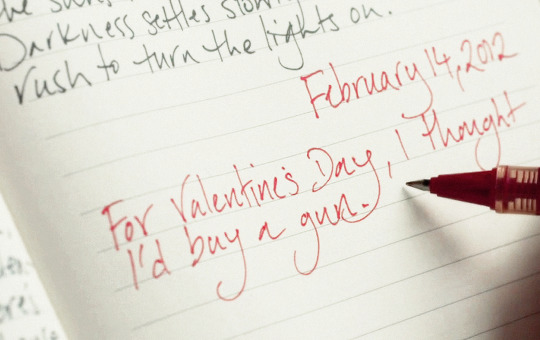 Darkness settles slowl
rush to turn the lights on.
February 14, 2012
For Valentine's Day, I thought
I'd buy a gun.